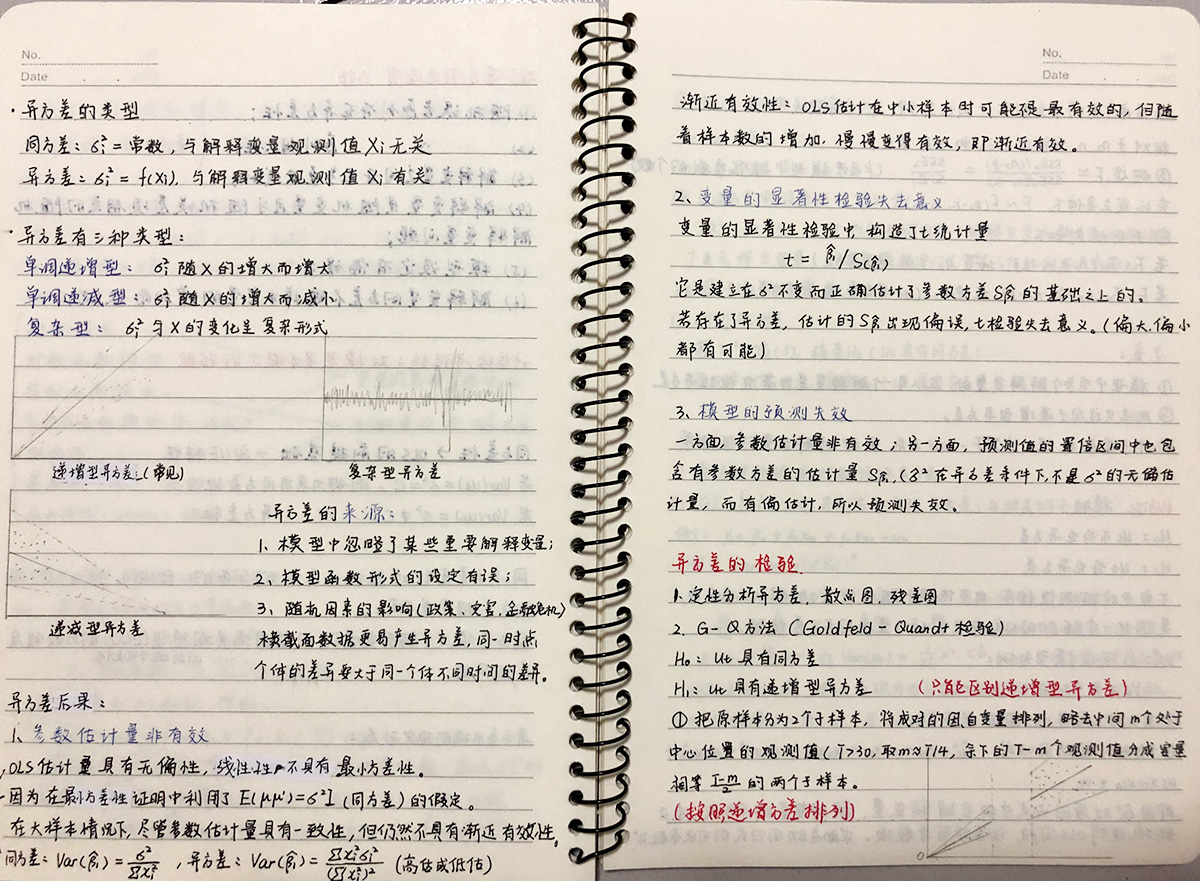 No.
Date . .
· 异方差的类型
同方差：σi² = 常数，与解释变量观测值 Xi 无关
异方差：σi² = f(Xi)，与解释变量观测值 Xi 有关
· 异方差有三种类型：
单调递增型：σi² 随 X 的增大而增大
单调递减型：σi² 随 X 的增大而减小
复杂型：σi² 与 X 的变化呈复杂形式
递增型异方差：(常见)
复杂型异方差
异方差的来源：
1、模型中忽略了某些重要解释变量；
2、模型函数形式的设定有误；
3、随机因素的影响(政策、灾害、金融危机)
横截面数据更易产生异方差，同一时点
个体的差异要大于同一个体不同时间的差异。
递减型异方差
异方差后果：
1、参数估计量非有效
OLS估计量具有无偏性，线性性，不具有最小方差性。
因为在最小方差性证明中利用了 E(μμ')=σ²I (同方差) 的假定。
在大样本情况下，尽管参数估计量具有一致性，但仍然不具有渐近有效性。
同方差：Var(β̂i) = σ²/Σxi²，异方差：Var(β̂i) = Σxi²σi²/(Σxi²)² (高估或低估)
No.
Date . .
渐近有效性：OLS估计在中小样本时可能不是最有效的，但随
着样本数的增加，慢慢变得有效，即渐近有效。
2、变量的显著性检验失去意义
变量的显著性检验中，构造了t统计量
t = β̂i/S(β̂i)
它是建立在σ²不变而正确估计了参数方差Sβ̂i的基础之上的。
若存在了异方差，估计的Sβ̂i出现偏误，t检验失去意义。(偏大，偏小
都有可能)
3、模型的预测失效
一方面，参数估计量非有效；另一方面，预测值的置信区间中也包
含有参数方差的估计量Sβ̂i，(σ̂²在异方差条件下，不是σ²的无偏估
计量，而有偏估计，所以预测失效。
异方差的检验
1. 定性分析异方差，散点图，残差图
2. G-Q方法 (Goldfeld-Quandt 检验)
H₀：ut 具有同方差
H₁：ut 具有递增型异方差 (只能区别递增型异方差)
① 把原样本分为2个子样本，将成对的因自变量排列，略去中间m个处于
中心位置的观测值 (T>30，取m≈T/4，余下的T-m个观测值分成容量
相等 T-m/2 的两个子样本。
(按照递增方差排列)
0